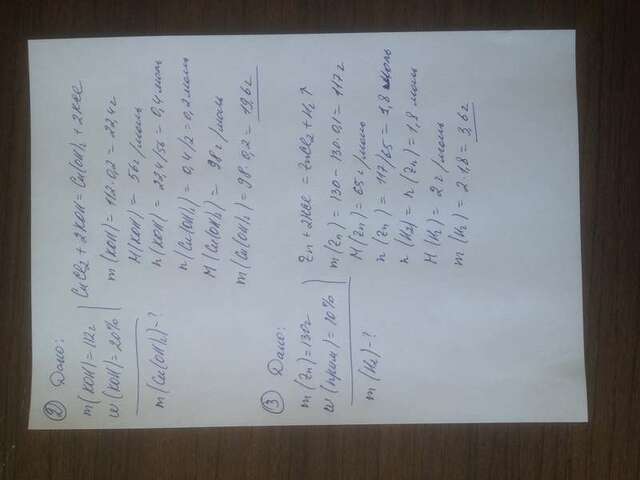 ② Дано:
m(KOH) = 112г
w(KOH) = 20%
m(Cu(OH)₂) - ?
CuCl₂ + 2KOH = Cu(OH)₂ + 2KCl
m(KOH) = 112·0,2 = 22,4г
M(KOH) = 56г/моль
n(KOH) = 22,4/56 = 0,4 моль
n(Cu(OH)₂) = 0,4/2 = 0,2 моль
M(Cu(OH)₂) = 98г/моль
m(Cu(OH)₂) = 98·0,2 = 19,6г
③ Дано:
m(Zn) = 130г
w(прим) = 10%
m(H₂) - ?
Zn + 2HCl = ZnCl₂ + H₂↑
m(Zn) = 130 - 130·0,1 = 117г
M(Zn) = 65г/моль
n(Zn) = 117/65 = 1,8 моль
n(H₂) = n(Zn) = 1,8 моль
M(H₂) = 2г/моль
m(H₂) = 2·1,8 = 3,6г